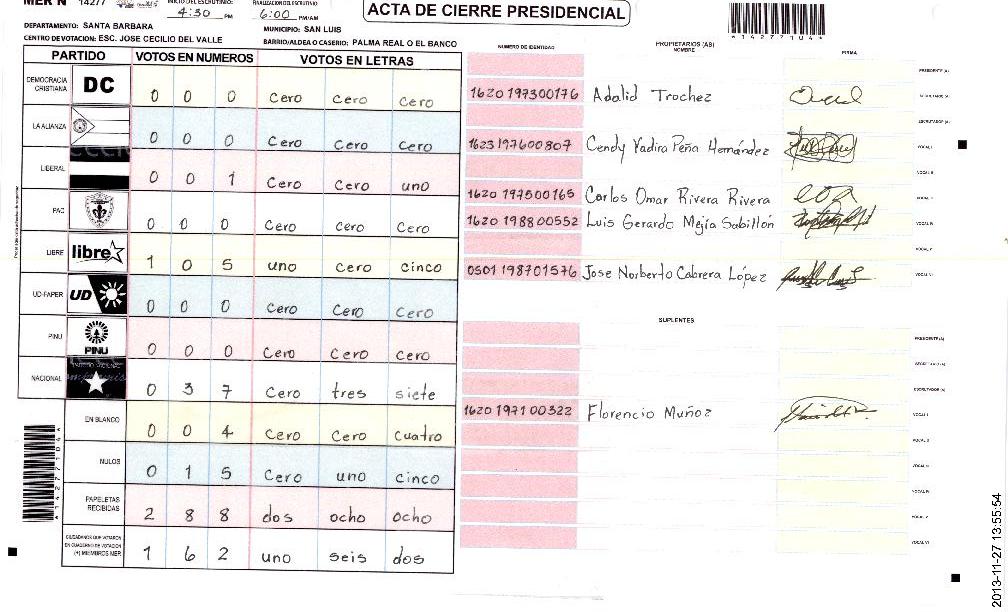 MER N° 14277 INICIO DEL ESCRUTINIO: 4:30 PM FINALIZACIÓN DEL ESCRUTINIO 6:00 PM/AM
ACTA DE CIERRE PRESIDENCIAL
*14277104*
DEPARTAMENTO: SANTA BARBARA MUNICIPIO: SAN LUIS
CENTRO DE VOTACION: ESC. JOSE CECILIO DEL VALLE BARRIO/ALDEA O CASERIO: PALMA REAL O EL BANCO
PARTIDO VOTOS EN NUMEROS VOTOS EN LETRAS
DEMOCRACIA CRISTIANA DC 0 0 0 Cero Cero Cero
LA ALIANZA 0 0 0 Cero Cero Cero
LIBERAL 0 0 1 Cero Cero uno
PAC 0 0 0 Cero Cero Cero
LIBRE libre 1 0 5 uno Cero cinco
UD-FAPER UD 0 0 0 Cero Cero Cero
PINU PINU 0 0 0 Cero Cero Cero
NACIONAL 0 3 7 Cero tres siete
EN BLANCO 0 0 4 Cero Cero Cuatro
NULOS 0 1 5 Cero uno cinco
PAPELETAS RECIBIDAS 2 8 8 dos ocho ocho
CIUDADANOS QUE VOTARON EN CUADERNO DE VOTACION (+) MIEMBROS MER 1 6 2 uno seis dos
NUMERO DE IDENTIDAD PROPIETARIOS (AS) NOMBRE FIRMA
PRESIDENTE (A)
1620 197300176 Adalid Trochez SECRETARIO (A)
ESCRUTADOR (A)
1623 197600807 Cendy Yadira Peña Hernández VOCAL I
VOCAL II
1620 197500165 Carlos Omar Rivera Rivera
1620 198800552 Luis Gerardo Mejía Sabillón VOCAL IV
VOCAL V
0501 198701576 Jose Norberto Cabrera López VOCAL VI
SUPLENTES
PRESIDENTE (A)
SECRETARIO (A)
ESCRUTADOR (A)
1620 1971 00322 Florencio Muñoz VOCAL I
VOCAL II
VOCAL III
VOCAL IV
VOCAL V
VOCAL VI
*14277104*
2013-11-27 13:55:54